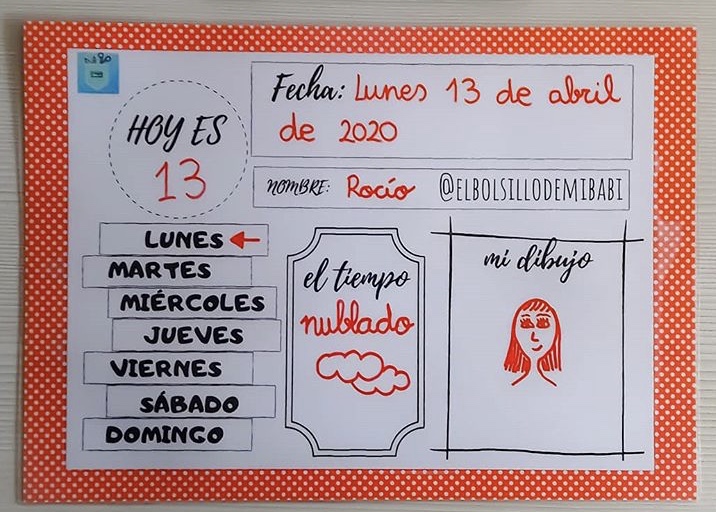 HOY ES
13
Fecha: Lunes 13 de abril
de 2020
NOMBRE: Rocío @ELBOLSILLODEMIBABI
LUNES ←
MARTES
MIÉRCOLES
JUEVES
VIERNES
SÁBADO
DOMINGO
el tiempo
nublado
mi dibujo